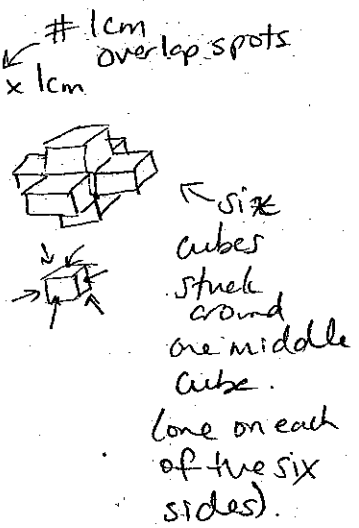 # 1cm
overlap spots
x 1cm
six
cubes
stuck
around
one middle
cube.
(one on each
of the six
sides).